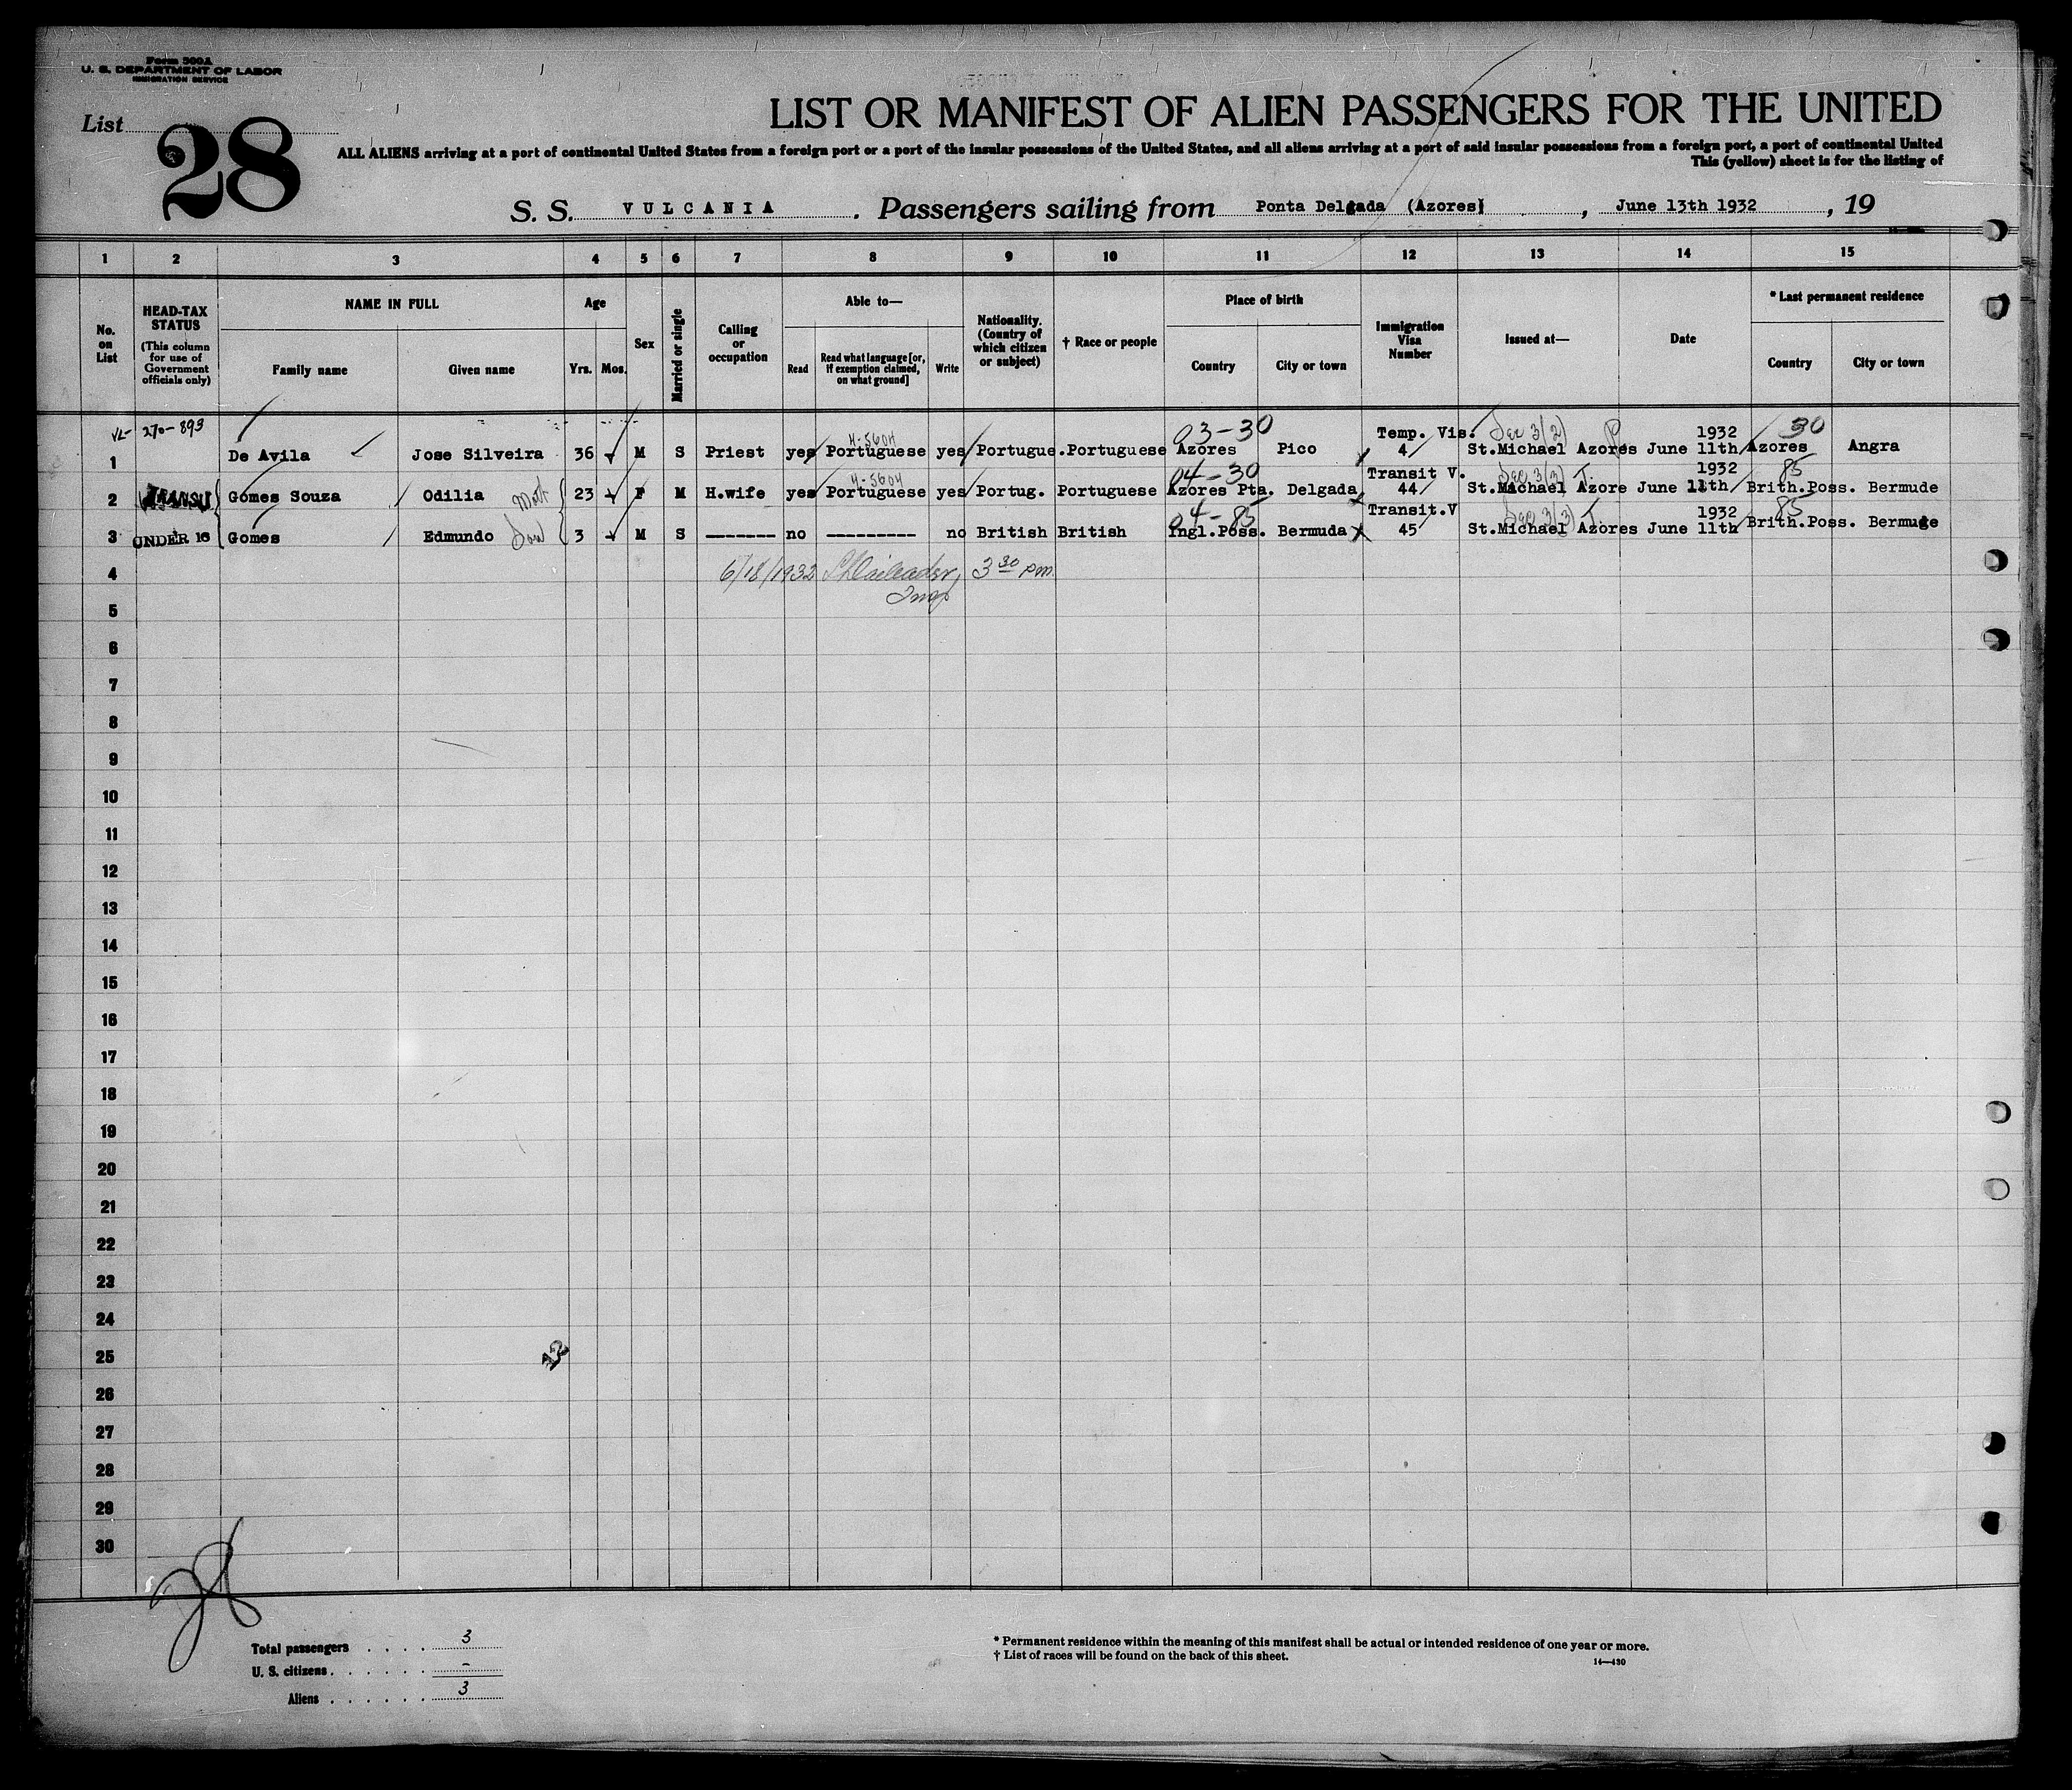 Form 500A
U. S. DEPARTMENT OF LABOR
IMMIGRATION SERVICE
List 28
LIST OR MANIFEST OF ALIEN PASSENGERS FOR THE UNITED
ALL ALIENS arriving at a port of continental United States from a foreign port or a port of the insular possessions of the United States, and all aliens arriving at a port of said insular possessions from a foreign port, a port of continental United
This (yellow) sheet is for the listing of
S. S. VULCANIA. Passengers sailing from Ponta Delgada (Azores), June 13th 1932, 19
1 2 3 4 5 6 7 8 9 10 11 12 13 14 15
No. on List
HEAD-TAX STATUS (This column for use of Government officials only)
NAME IN FULL
Family name Given name
Age
Yrs. Mos.
Sex
Married or single
Calling or occupation
Able to—
Read Read what language [or, if exemption claimed, on what ground] Write
Nationality. (Country of which citizen or subject)
† Race or people
Place of birth
Country City or town
Immigration Visa Number
Issued at—
Date
* Last permanent residence
Country City or town
270-893 4-5604 03-30 Temp. Vis. Sec 3(2) 1932 30
1 De Avila Jose Silveira 36 M S Priest yes Portuguese yes Portugue. Portuguese Azores Pico 4 St.Michael Azores June 11th Azores Angra
4-5604 04-30 Transit V. Sec 3(3) T. 1932 85
2 TRANSIT Gomes Souza Odilia Moth 23 F M H.wife yes Portuguese yes Portug. Portuguese Azores Pta. Delgada 44 St.Michael Azore June 11th Brith.Poss. Bermude
04-85 Transit.V Sec 3(3) T. 1932 85
3 UNDER 16 Gomes Edmundo Son 3 M S ------- no --------- no British British Ingl.Poss. Bermuda 45 St.Michael Azores June 11th Brith.Poss. Bermuge
4 6/18/1932 3 30 pm
5 Insp
6
7
8
9
10
11
12
13
14
15
16
17
18
19
20
21
22
23
24
25
26
27
28
29
30
Total passengers . . . . 3
U. S. citizens . . . . . . -
Aliens . . . . . . 3
* Permanent residence within the meaning of this manifest shall be actual or intended residence of one year or more.
† List of races will be found on the back of this sheet.
14—430